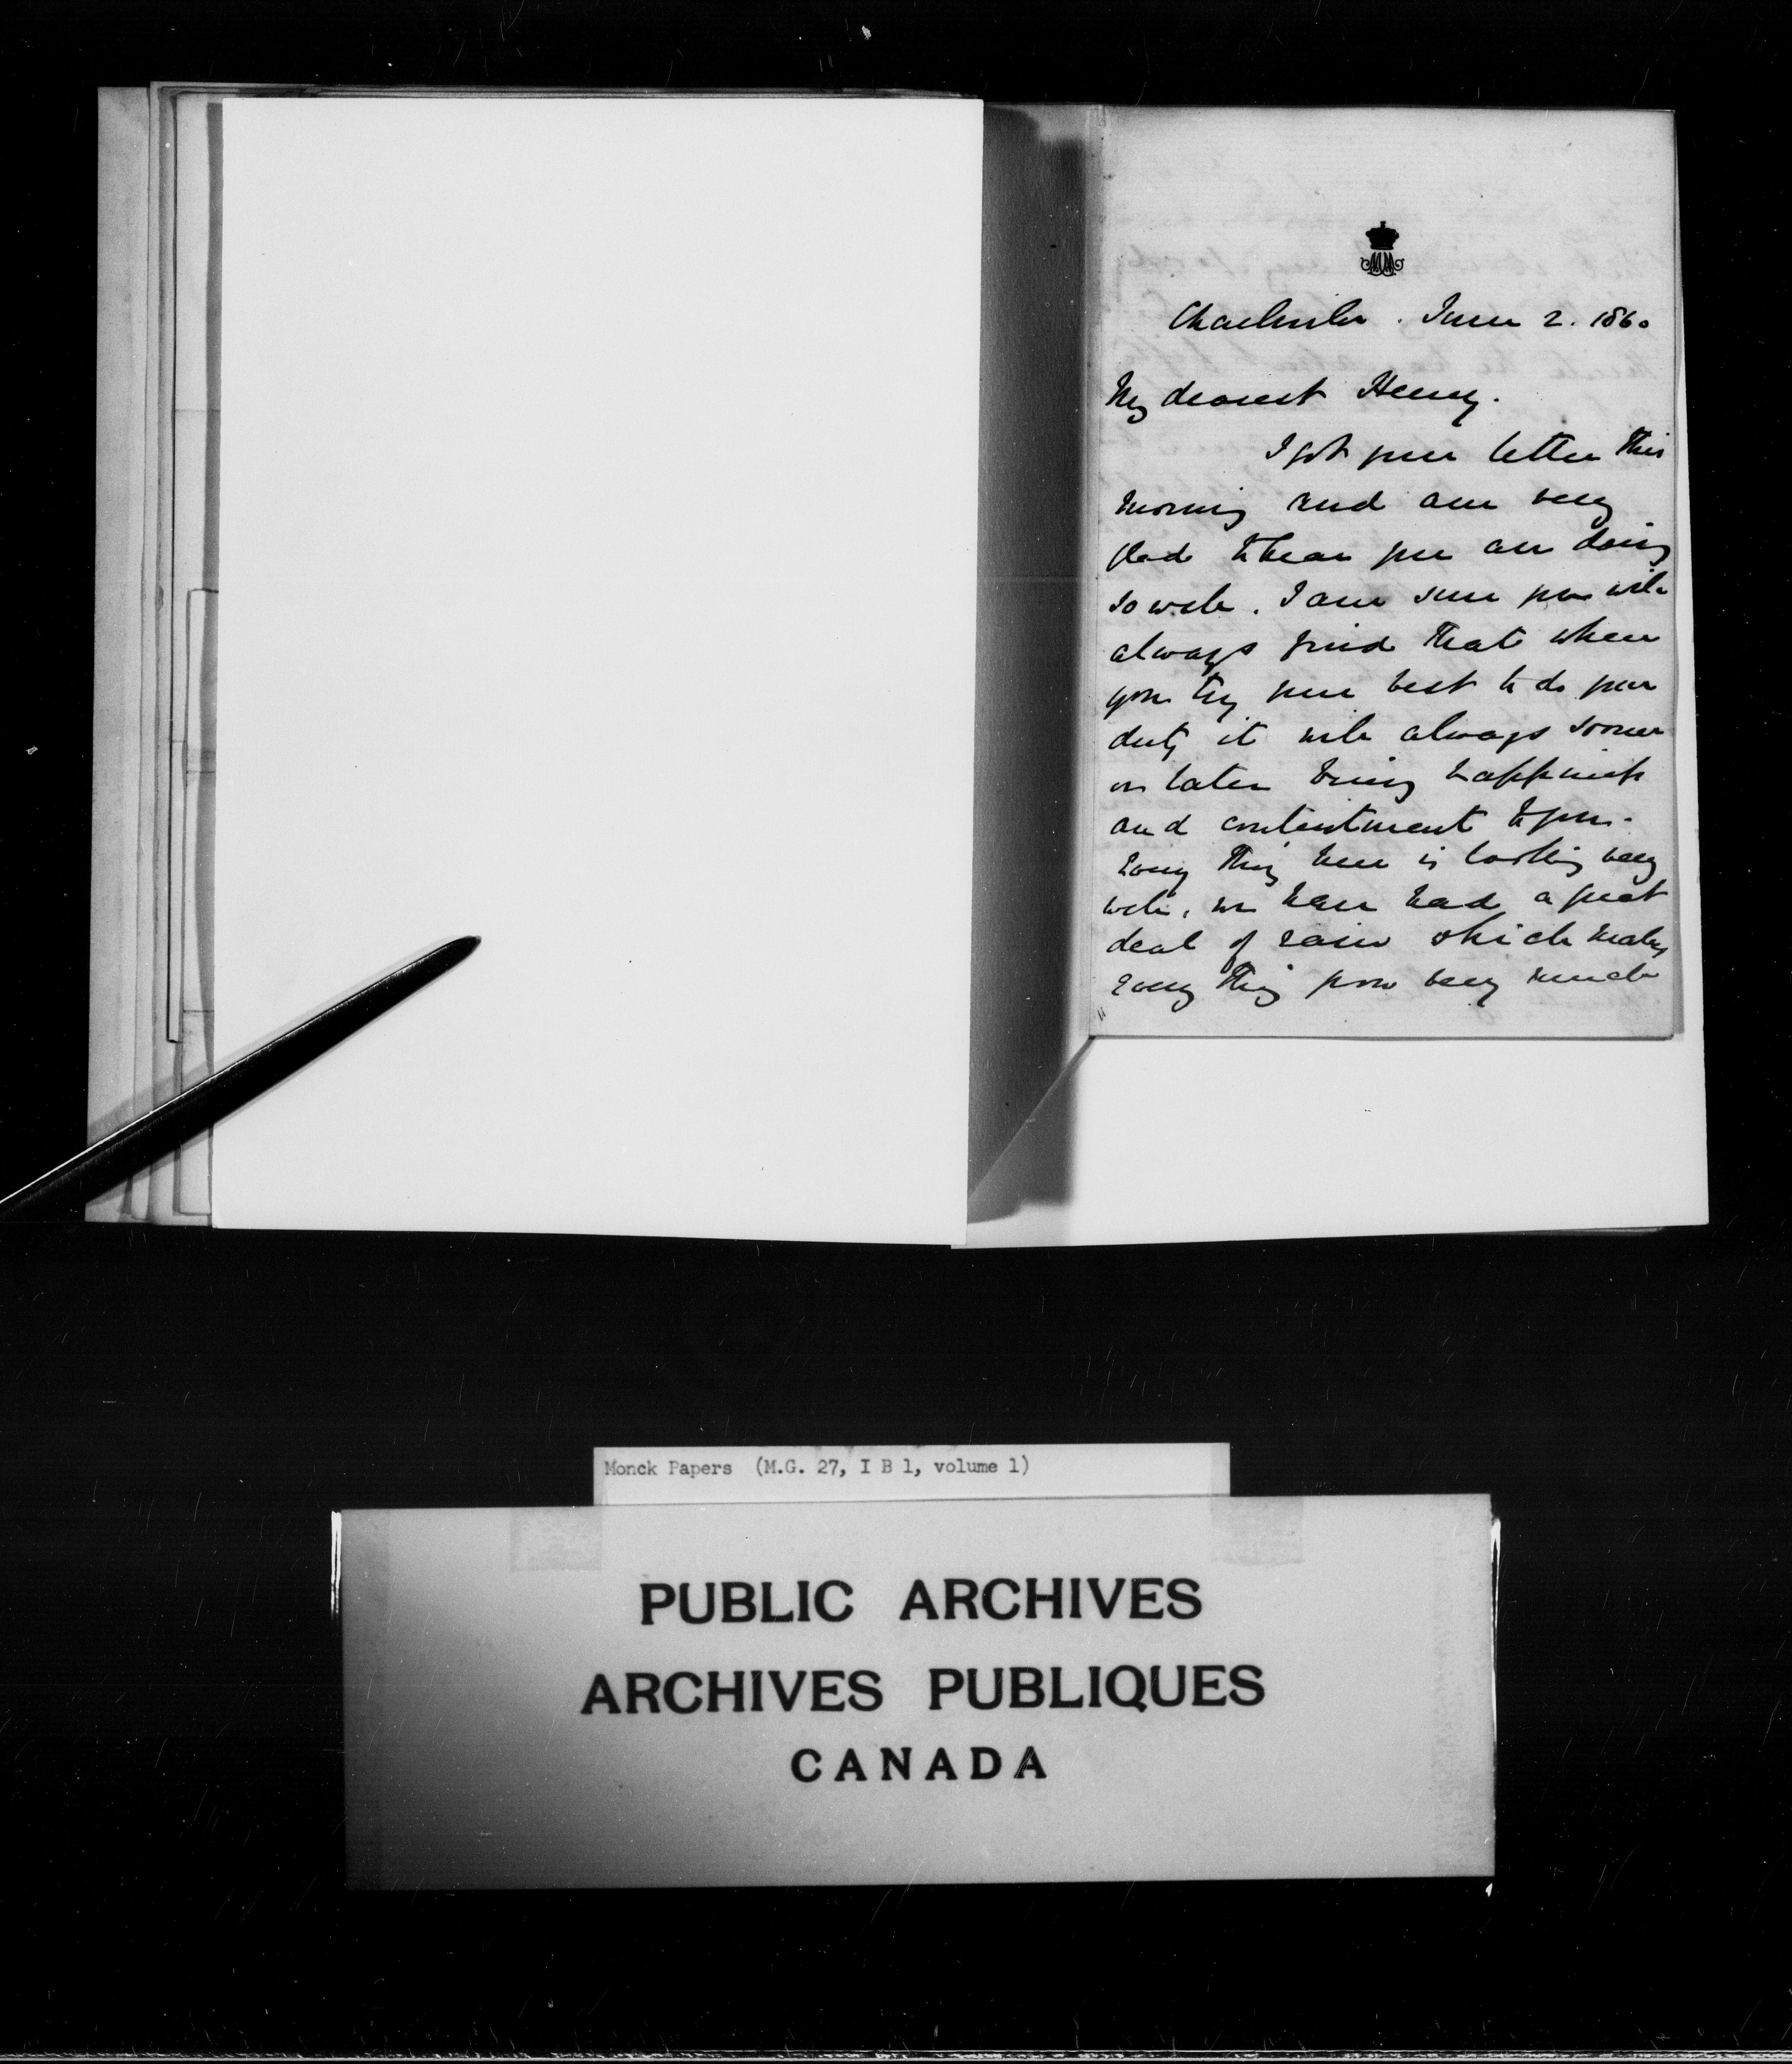 Charleville. June 2. 1860
My dearest Henry.
I got your letter this
morning and am very
glad to hear you are doing
so well. I am sure you will
always find that when
you try your best to do your
duty it will always sooner
or later bring happiness
and contentment to you.
Every thing here is looking very
well, we have had a great
deal of rain which makes
every thing grow very much
Monck Papers (M.G. 27, I B 1, volume 1)
PUBLIC ARCHIVES
ARCHIVES PUBLIQUES
CANADA